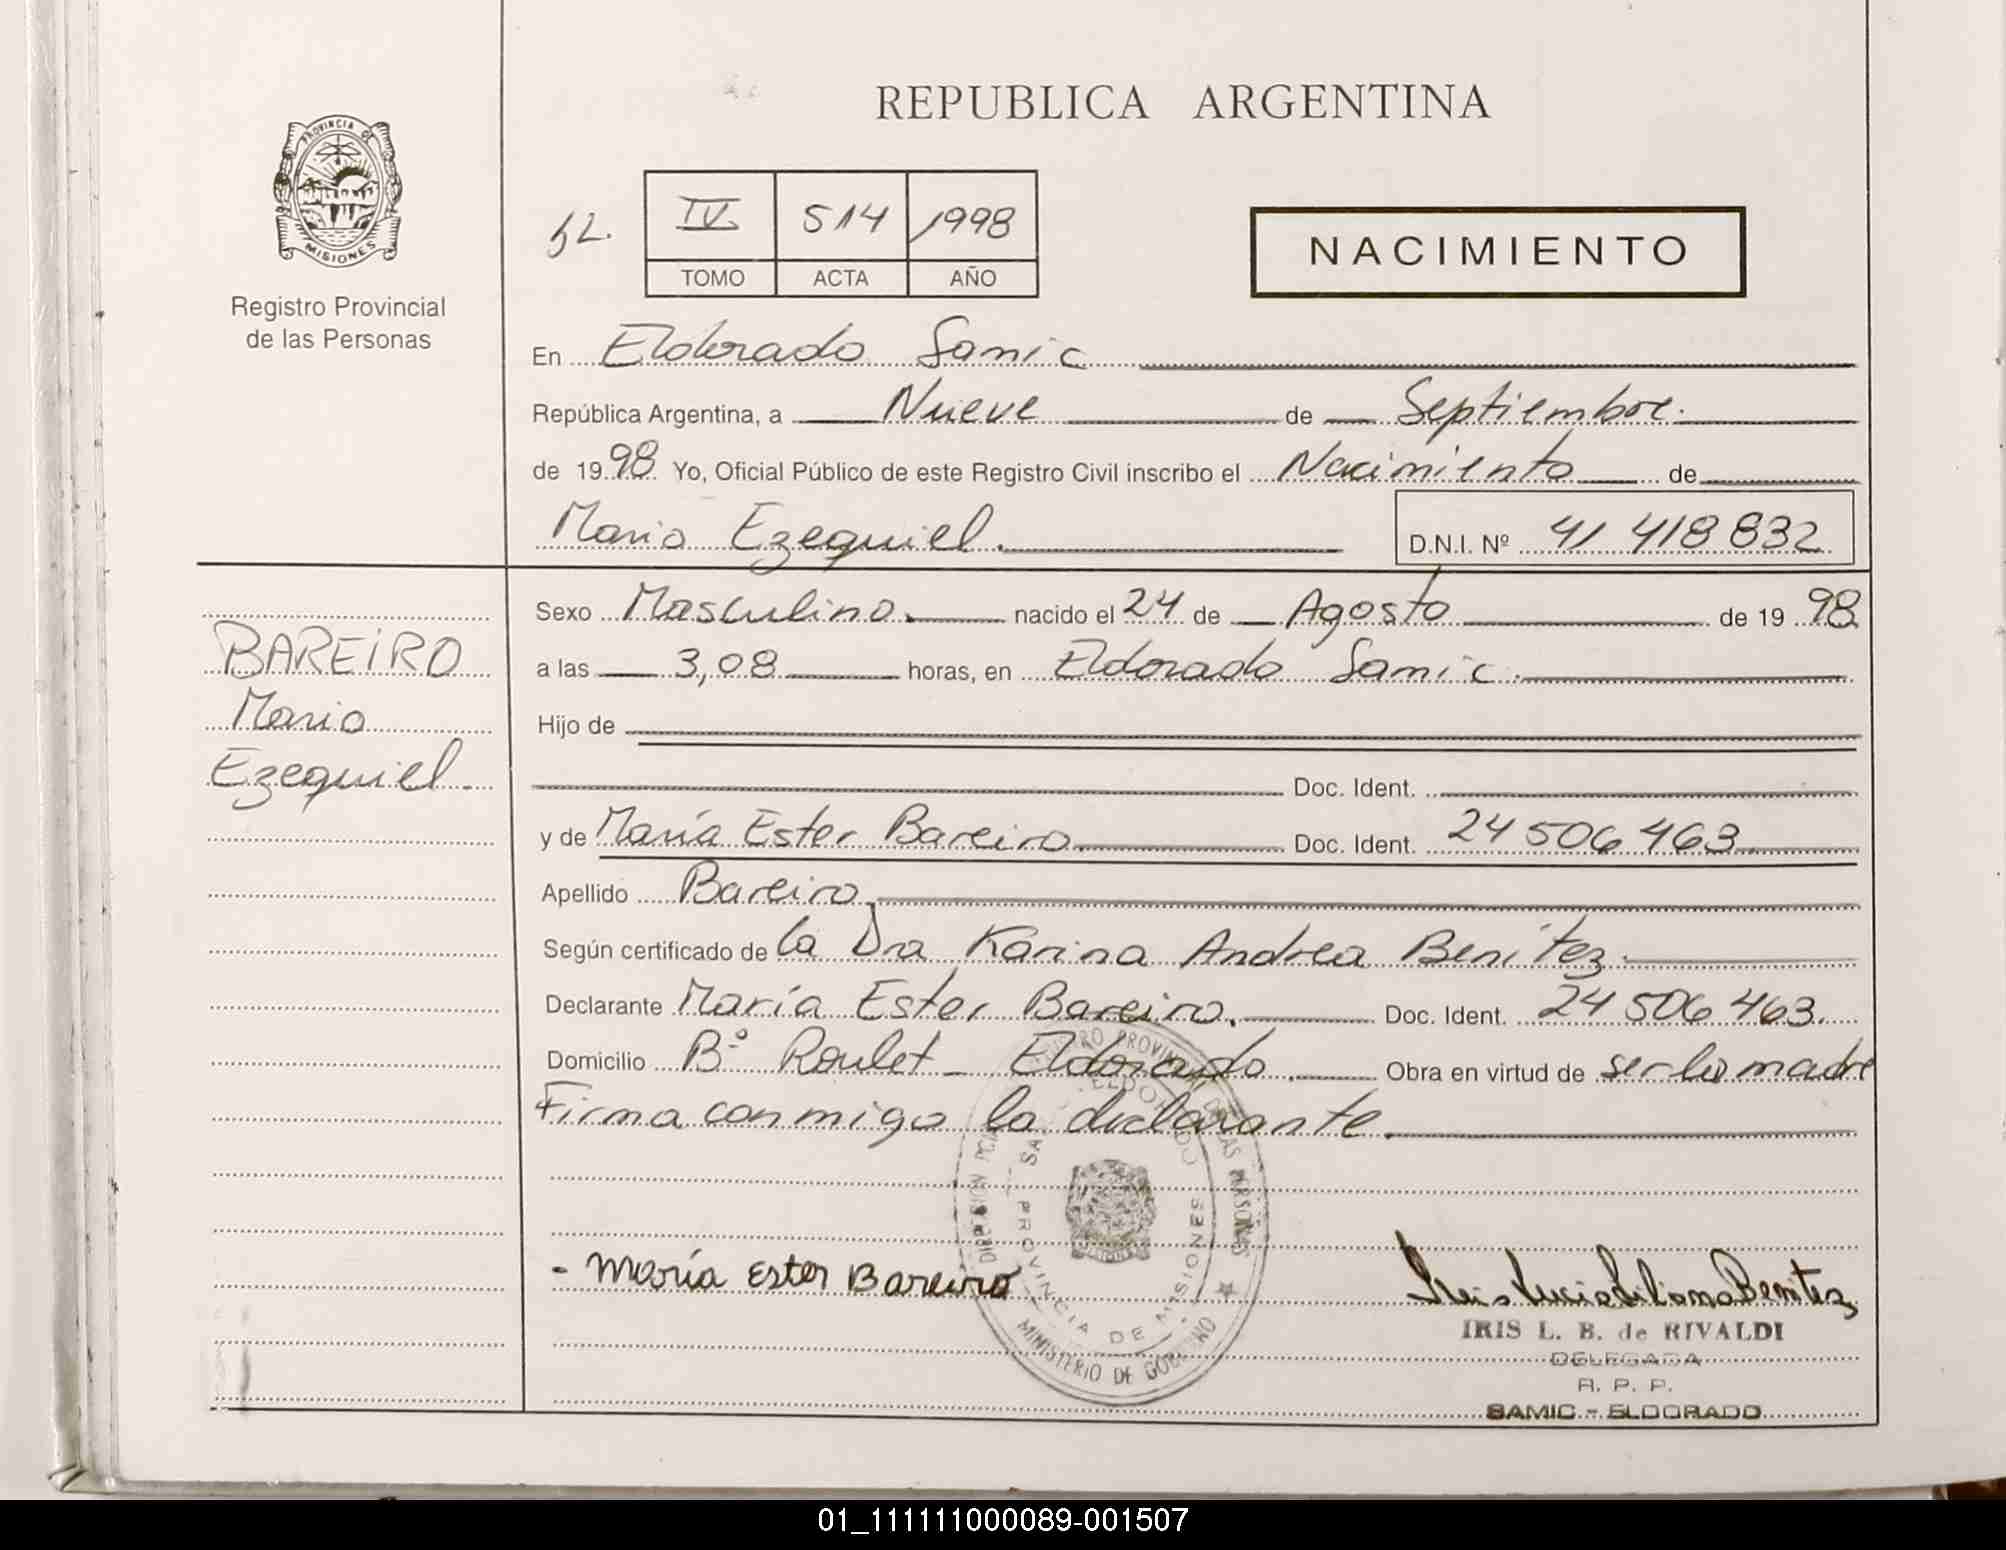 REPUBLICA ARGENTINA
PROVINCIA DE
MISIONES
Registro Provincial
de las Personas
IV 514 1998
TOMO ACTA AÑO
NACIMIENTO
En Eldorado Samic
República Argentina, a Nueve de Septiembre.
de 1998 Yo, Oficial Público de este Registro Civil inscribo el Nacimiento de
Mario Ezequiel. D.N.I. Nº 41 418 832
BAREIRO
Mario
Ezequiel.
Sexo Masculino. nacido el 24 de Agosto de 1998
a las 3,08 horas, en Eldorado Samic.
Hijo de
Doc. Ident.
y de María Ester Bareiro. Doc. Ident. 24 506 463
Apellido Bareiro
Según certificado de la Dra Karina Andrea Benítez.
Declarante María Ester Bareiro. Doc. Ident. 24 506 463.
Domicilio Bº Roulet - Eldorado. Obra en virtud de ser la madre
Firma conmigo la declarante.
PROVINCIA DE MISIONES
MINISTERIO DE GOBIERNO
- María Ester Bareiro
IRIS L. B. de RIVALDI
DELEGADA
R. P. P.
SAMIC - ELDORADO
01_111111000089-001507